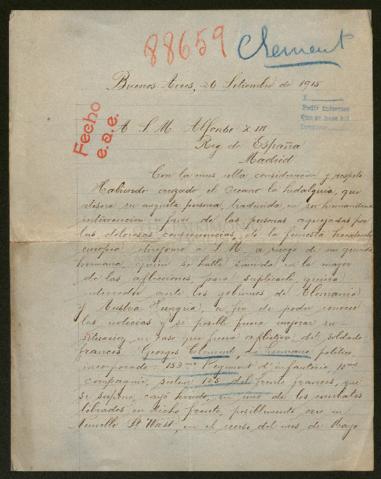 88659 Clement
Buenos Aires, 26 Setiembre de 1915
Fecho
e.a.e.
A S. M. Alfonso XIII
Rey de España
Madrid
Con la mas alta consideracion y respeto
Habiendo cruzado el oceano la hidalguia, que
atesora su augusta persona, traducida en su humanitaria
intervencion a favor de las personas apenadas por
las dolorosas consecuencias de la funesta hecatombe
europea, dirijome a S. M. a ruego de mi querida
hermana, quien se halla sumida en la mayor
de las aflicciones, para suplicarle quiera
interceder ante los gobiernos de Alemania
y Austria Hungria, a fin de poder conocer
las noticias y si posible fuera mejorar su
situacion, en caso que fuera aflictiva del soldado
frances Georges Clement, hermano politico,
incorporado 153me Regiment d'infanterie, 10me
Compagnie, secteur 125 del frente frances, que
se supone, cayó herido, en uno de los combates
librados en dicho frente, posiblemente cerca
Neuville St Vaast, en el curso del mes de Mayo